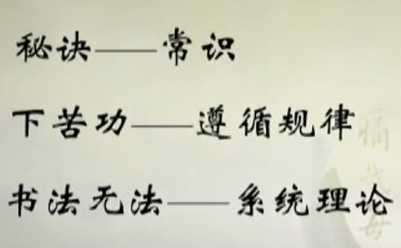 秘诀——常识
下苦功——遵循规律
书法无法——系统理论